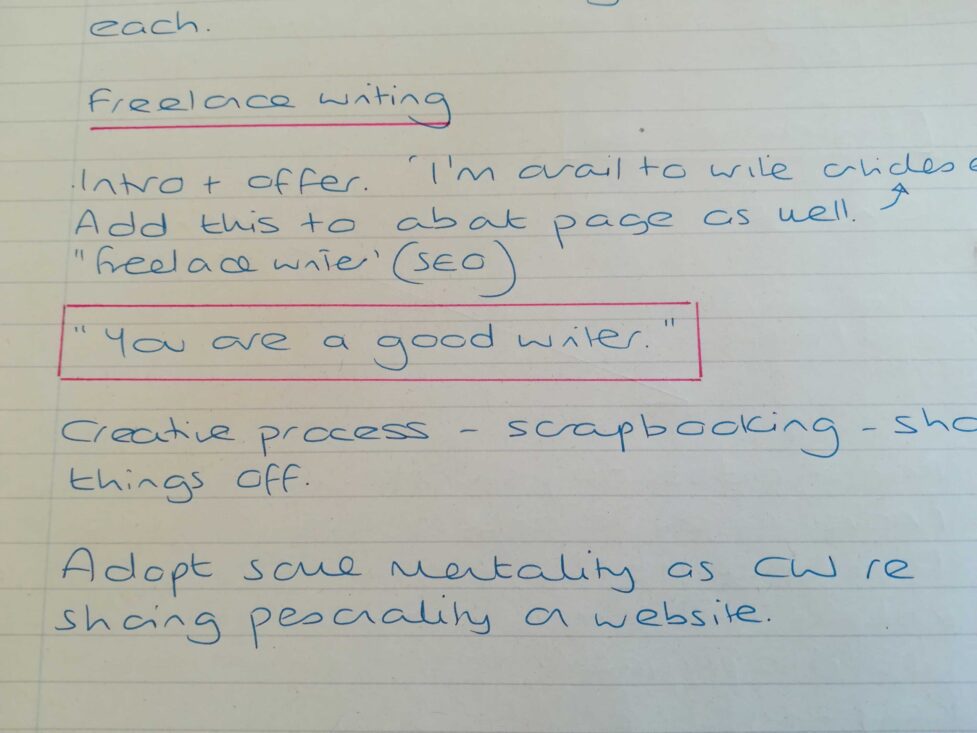 each.
Freelance writing
Intro + offer. "I'm avail to write articles
Add this to about page as well.
"freelance writer" (SEO)
"You are a good writer."
Creative process - scrapbooking - sho
things off.
Adopt same mentality as CW re
sharing personality on website.